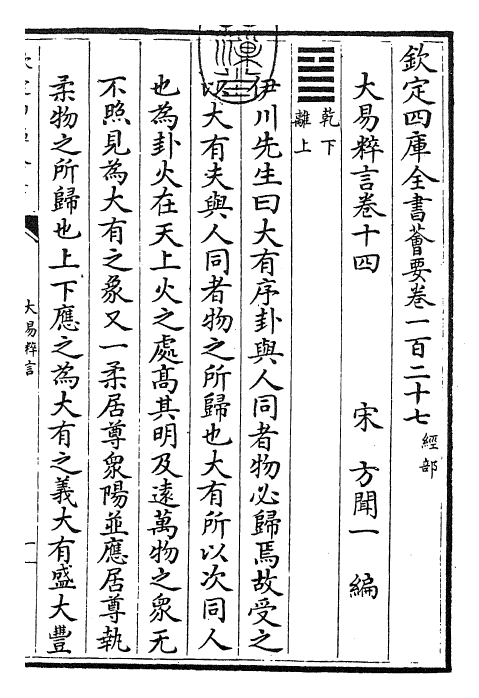 欽定四庫全書薈要卷一百二十七 經部
大易粹言卷十四 宋 方聞一 編
乾下
離上
伊川先生曰大有序卦與人同者物必歸焉故受之
以大有夫與人同者物之所歸也大有所以次同人
也為卦火在天上火之處髙其明及逺萬物之衆无
不照見為大有之象又一柔居尊衆陽並應居尊執
柔物之所歸也上下應之為大有之義大有盛大豐
大易粹言
一